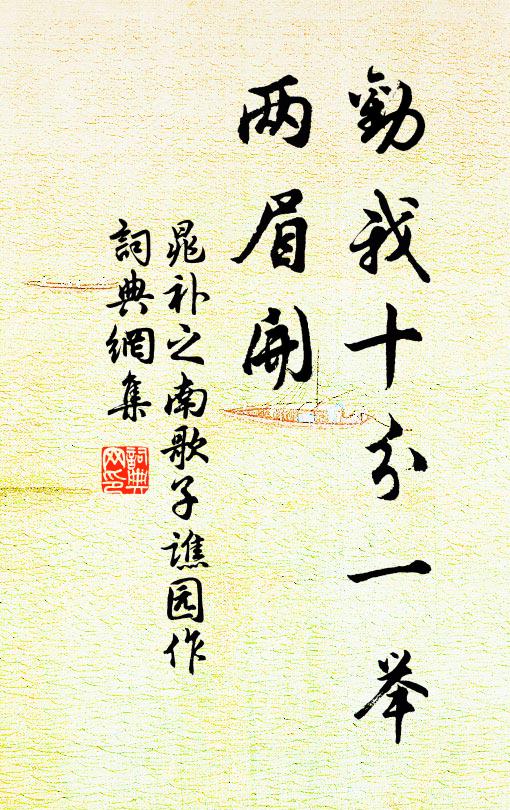 勸我十分一举
两眉開
晁补之南歌子譙园作
詞典網集
詞典
网印